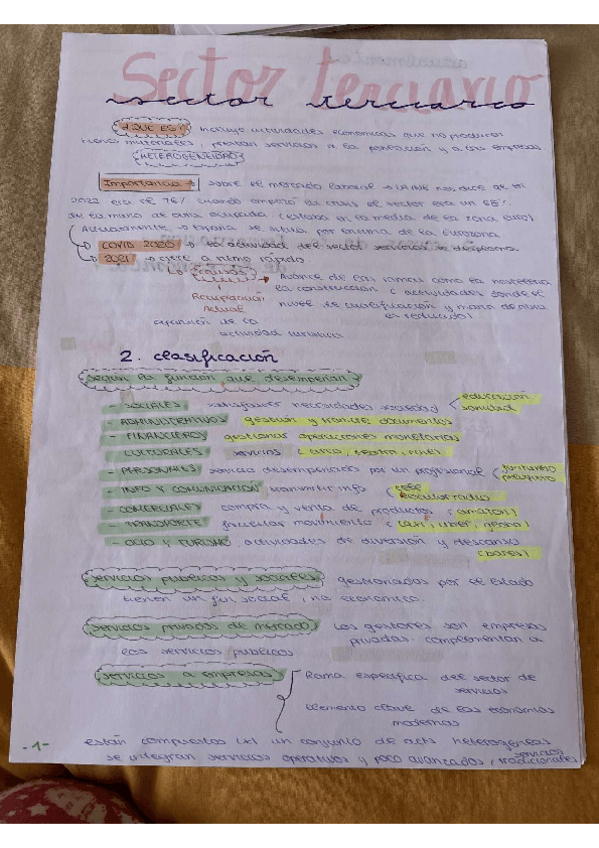 Sector terciario
sector terciario
¿QUE ES? incluye actividades economicas que no producen
bienes materiales, prestan servicios a la población y a las empresas
HETEROGENEIDAD
Importancia → sobre el mercado laboral → la INE nos dice que en
2022 era el 76% cuando empezó la crisis el sector era un 68%
de la mano de obra ocupada (estaba en la media de la zona euro)
Actualmente → España se situa por encima de la eurozona
COVID 2020 → la actividad del sector servicios se desploma
2021 → crece a ritmo rápido
causas → Avance de las ramas como la hosteleria
la construccion (actividades donde el
nivel de cualificación y mano de obra
es reducido)
Recuperación
Actual
expansión de la
actividad turistica
2. clasificación
según la función que desempeñan
- SOCIALES satisfacer necesidades sociedad educación
sanidad
- ADMINISTRATIVOS gestión y tramite documentos
- FINANCIERO gestionar operaciones monetarias
CULTURALES servicios (circo, teatro, cine)
- PERSONALES servicio desempeñado por un profesional
- INFO Y COMUNICACIÓN transmitir info
radio
- COMERCIALES compra y venta de productos (amazon)
- TRANSPORTE facilitar movimiento (uber,
- OCIO Y TURISMO actividades de diversión y descanso
(bares)
servicios publicos y sociales gestionados por el Estado
tienen un fin social, no economico.
servicios privados de mercado los gestores son empresas
privadas. complementan a
los servicios publicos
servicios a empresas Rama especifica del sector de
servicios
elemento clave de las economias
modernas
están compuestos un conjunto de acts heterogeneas
se integran servicios operativos y poco avanzados, servicios tradicionales
-1-